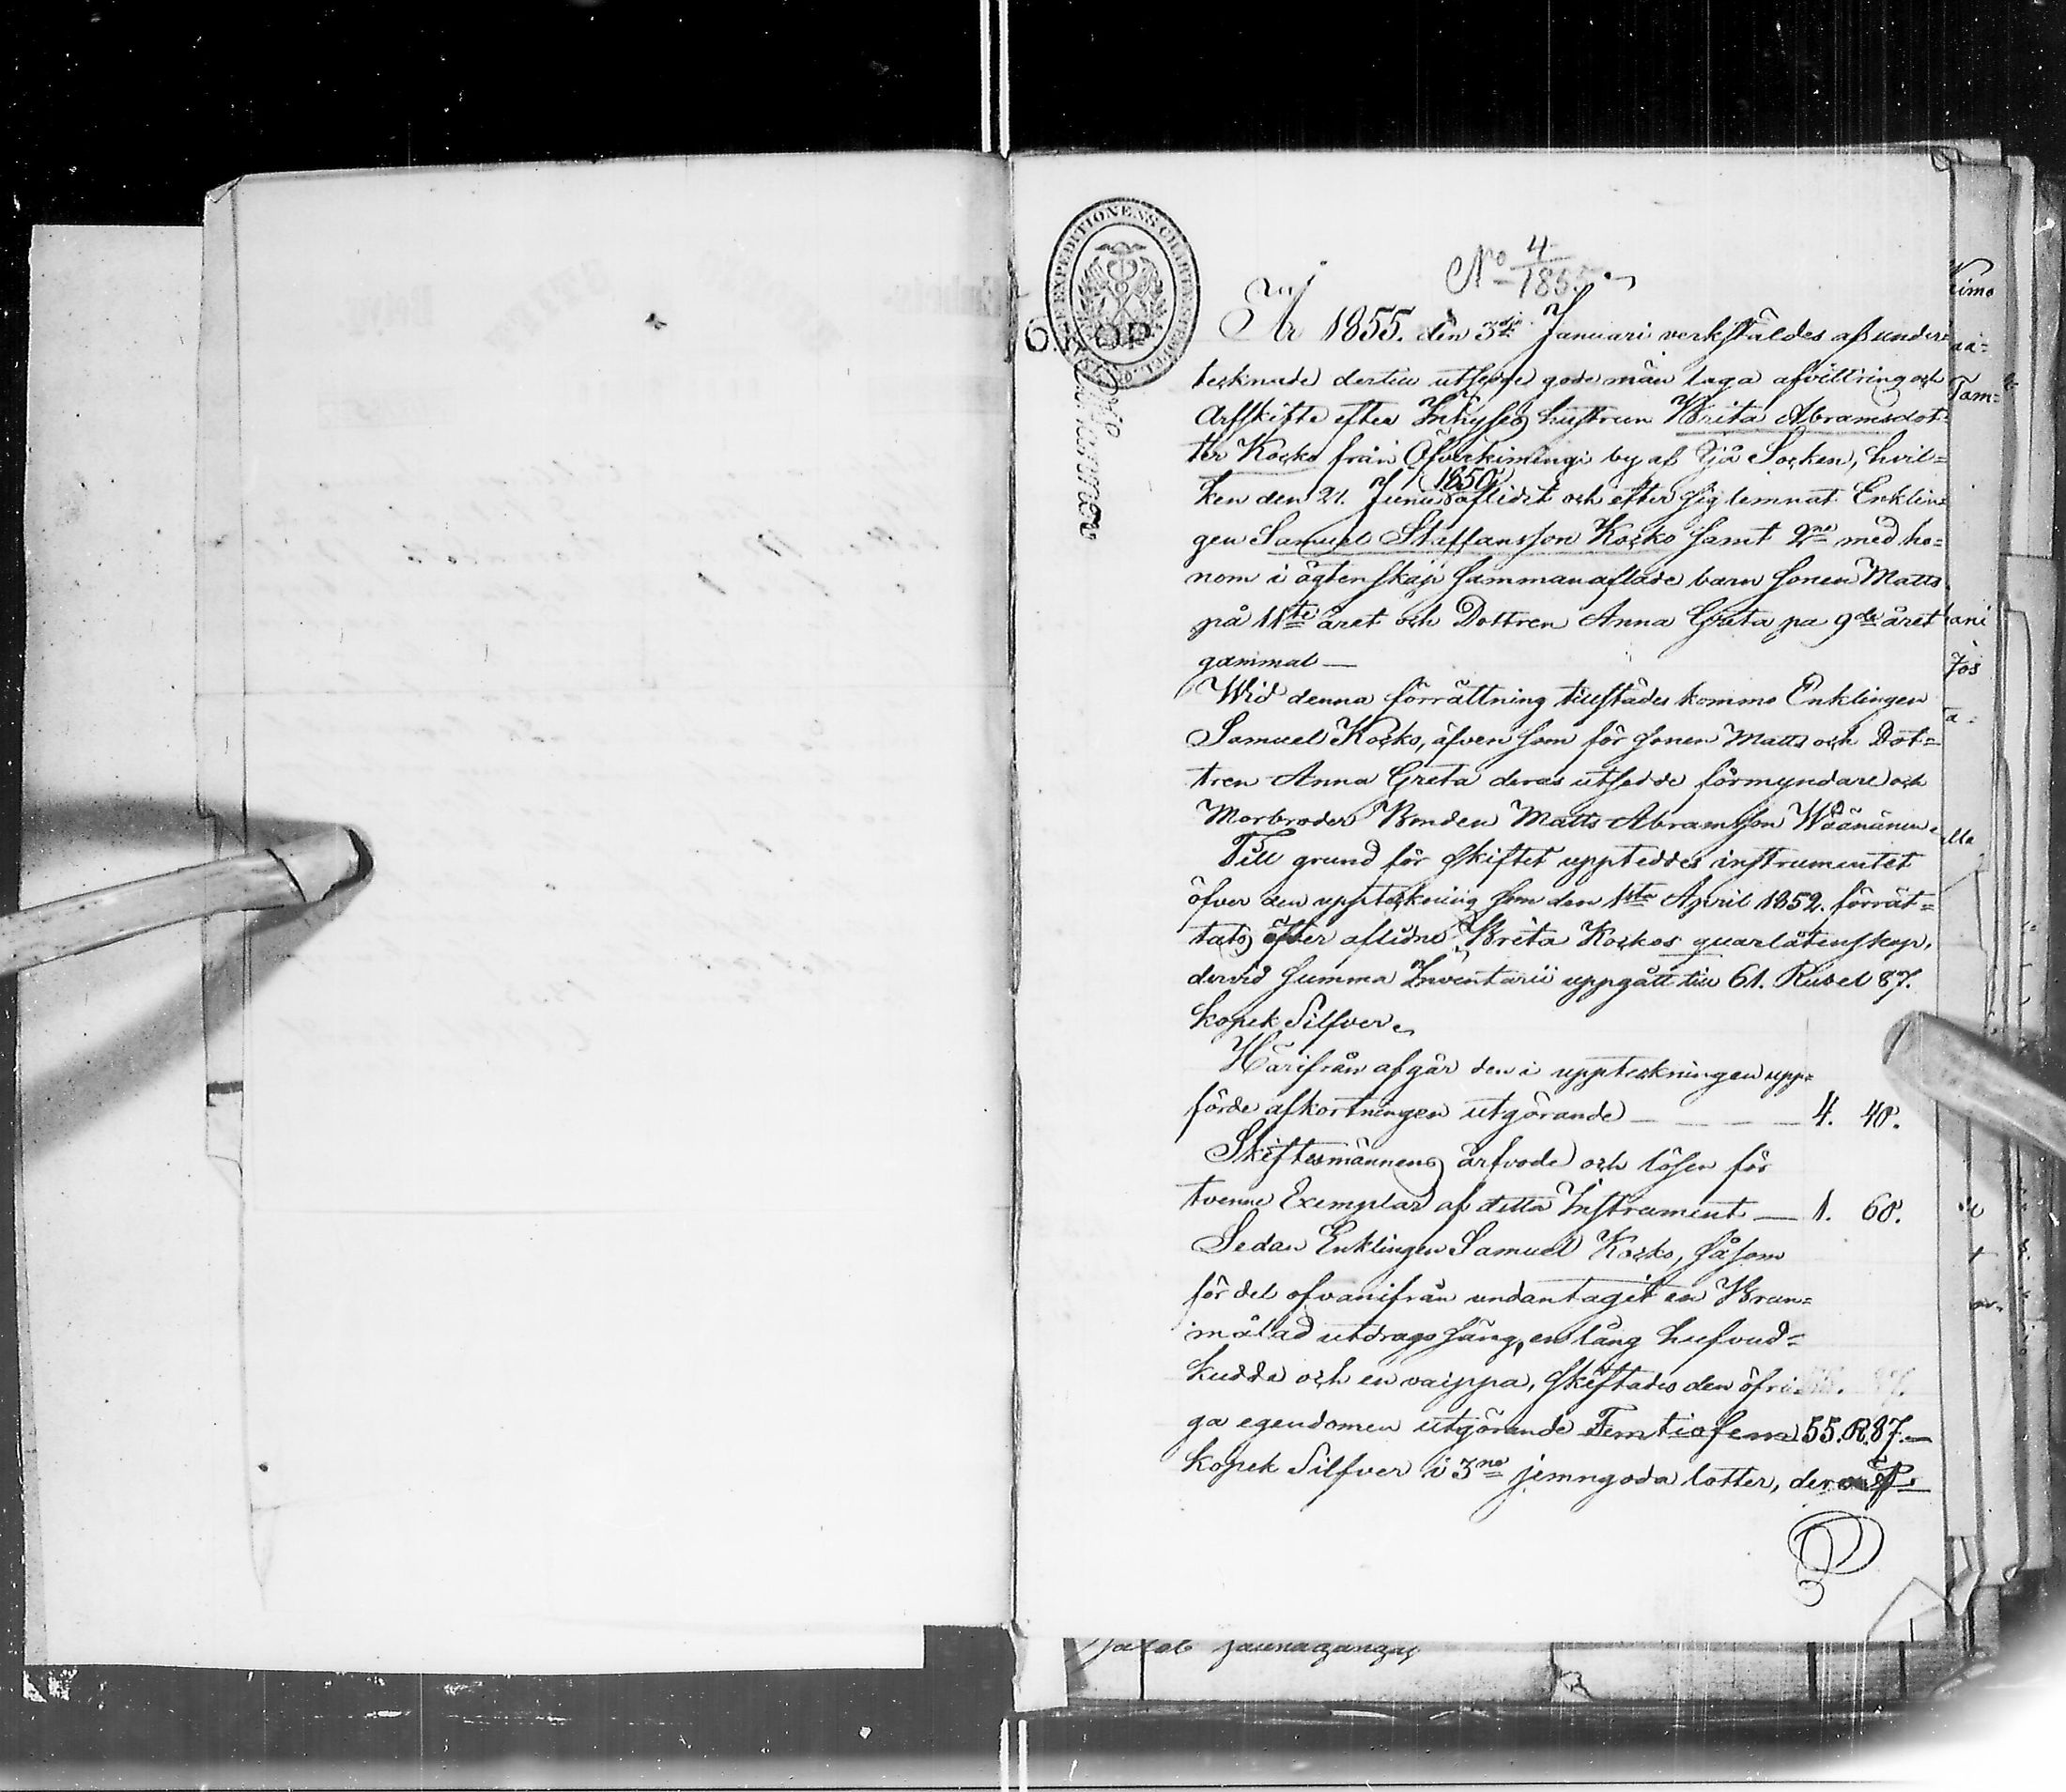 No 4/1855.
År 1855. den 3die Januari verkställdes af under=
tecknade dertill utsedde gode män laga afvittring och
Arfskifte efter Inhyses hustrun Brita Abramsdot=
ter Kocko från Öfverkiminge by af Ijå Socken, hvil=
ken den 21. Junii 1850 aflidit och efter sig lemnat Enklin=
gen Samuel Staffansson Kocko samt 2ne med ho=
nom i ägtenskap sammanaflade barn sonen Matts
på 11te året och Dottren Anna Greta pa 9de året
gammal —
Wid denna förrättning tillstädes kommo Enklingen
Samuel Kocko, äfven som för sonen Matts och Dot=
tren Anna Greta deras utsedde förmyndare och
Morbroder Bonden Matts Abramsson Wäänänen.
Till grund för skiftet uppteddes instrumentet
öfver den uppteckning som den 1sta April 1852. förrät=
tats efter aflidne Brita Kockos quarlåtenskap,
dervid Summa Inventarii uppgått till 61. Rubel 87.
kopek Silfver.
Härifrån afgår den i uppteckningen upp=
förde afkortningen utgörande — 4. 40.
Skiftesmännens arfvode och lösen för
tvenne Exemplar af detta Instrument — 1. 60.
Sedan Enklingen Samuel Kocko, såsom
fördel ofvanifrån undantagit en Brun=
målad utdragssäng, en lång hufvud=
kudda och en vaippa, skiftades den öfri=
ga egendomen utgörande Femtiofem 55. R. 87. —
kopek Silfver i 3ne jemngoda lotter, deraf
6. KOP.
EXPEDITIONENS CHARTÆ